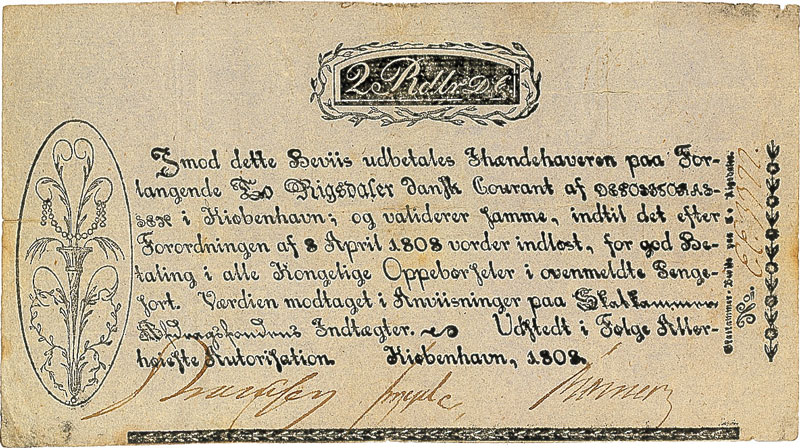 2 Rdlr. D. C.
Imod dette Beviis udbetales Ihændehaveren paa For-
langende To Rigsdaler dansk Courant af DEPOSITOKAS-
SEN i Kiøbenhavn; og validerer samme, indtil det efter
Forordningen af 8 April 1808 vorder indløst, for god Be-
taling i alle Kongelige Oppebørseler i ovenmeldte Penge-
sort. Værdien modtaget i Anviisninger paa Skatkammer
Afdragsfondens Indtægter. Udstedt i Følge Aller-
høieste Autorisation. Kiøbenhavn, 1808.
Skatkammer-Beviis paa To Rigsdaler.
No.